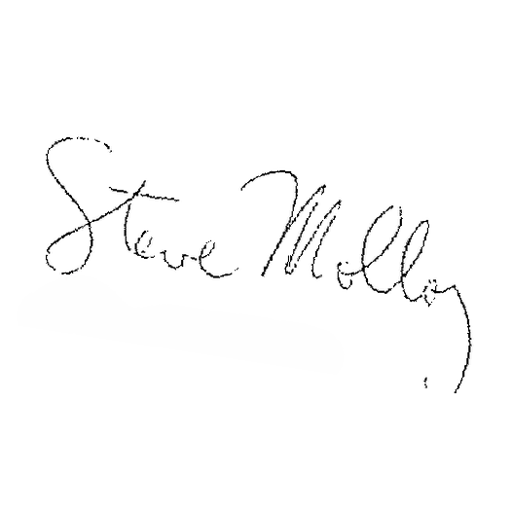 Steve Molloy